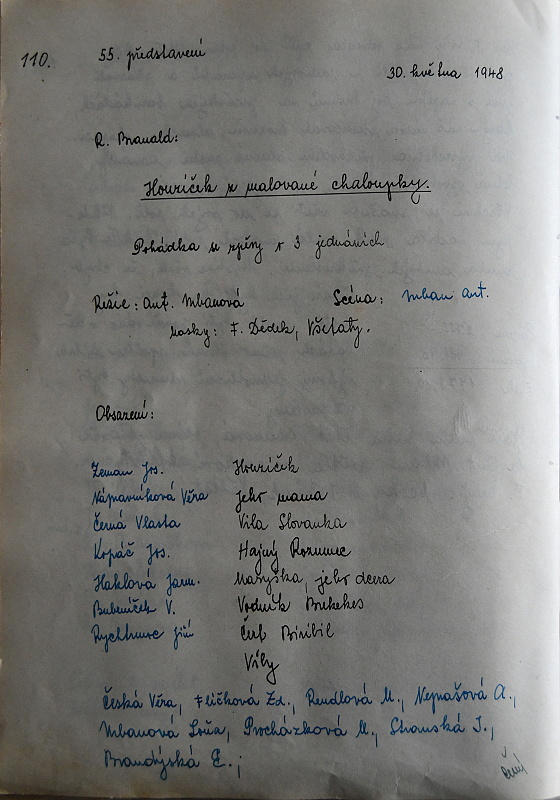 110. 55. představení
30. května 1948
R. Branald:
Honzíček z malované chaloupky.
Pohádka se zpěvy v 3 jednáních
Režie: Ant. Urbanová Scéna: Urban Ant.
masky: F. Dědek, Všetaty.
Obsazení:
Zeman Jos. Honzíček
Nápravníková Věra jeho mama
Černá Vlasta Vila Slovanka
Kopáč Jos. Hajný Rozumec
Haklová Jarm. Maryška, jeho dcera
Bubeníček V. Vodník Brekekes
Rychtmoc Jiří Čert Biribil
Víly
Česká Věra, Fličková Zd., Rendlová M., Neprašová A.,
Urbanová Soňa, Procházková M., Stranská J.,
Brandýská E.,